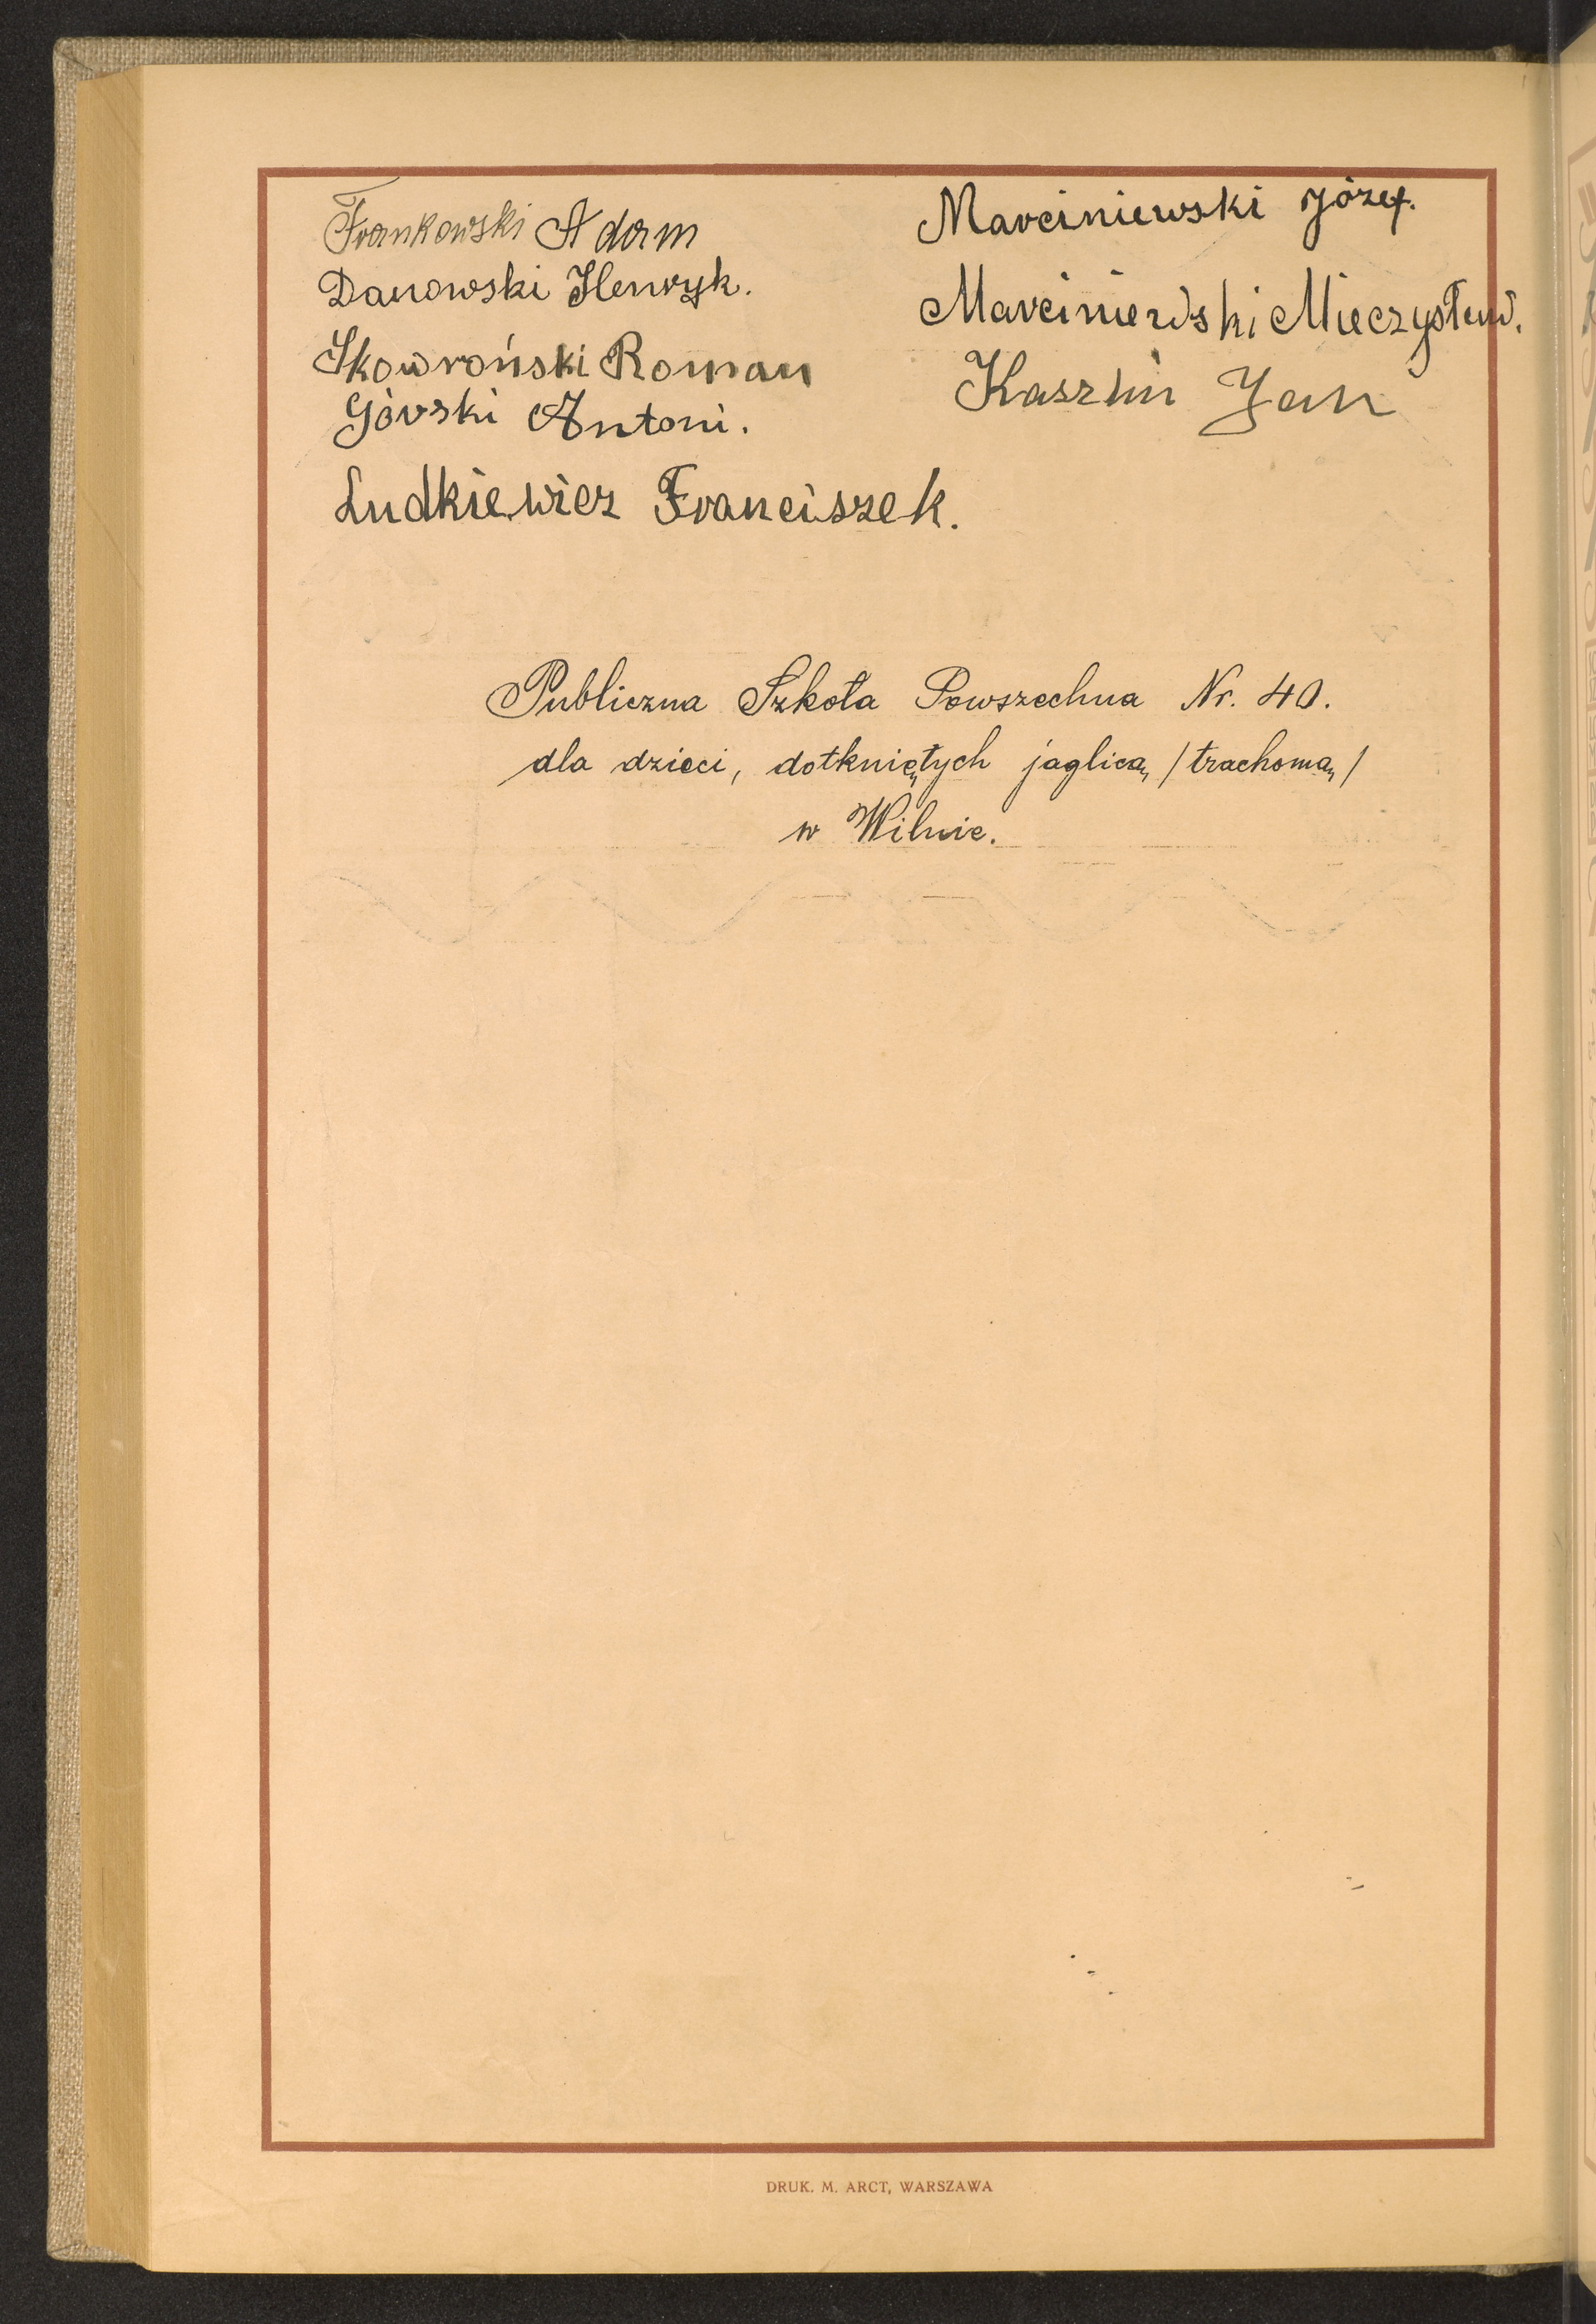 Frankowski Adam
Danowski Henryk.
Skowroński Roman
Górski Antoni.
Ludkiewicz Franciszek.
Marciniewski Józef.
Marciniewski Mieczysław.
Jan
Publiczna Szkoła Powszechna Nr. 40.
dla dzieci, dotkniętych jaglicą, /trachomą/
w Wilnie.
DRUK. M. ARCT, WARSZAWA